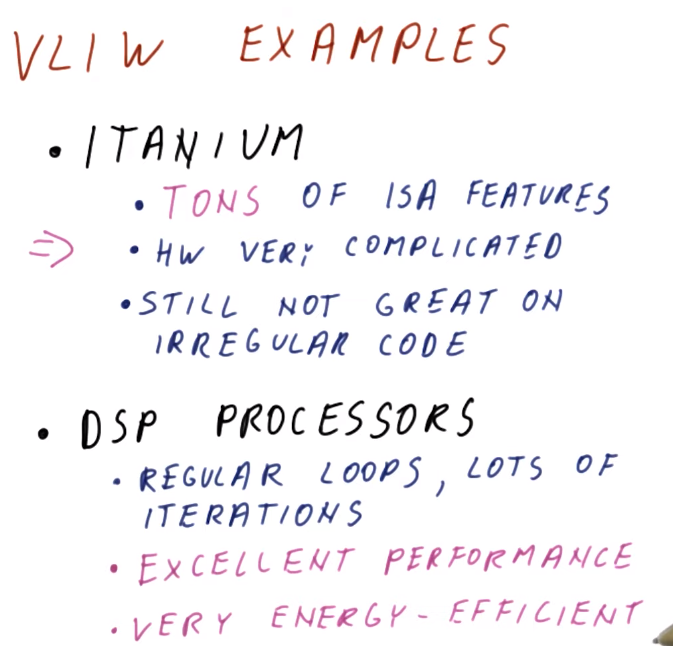 VLIW EXAMPLES
• ITANIUM
• TONS OF ISA FEATURES
⇒ • HW VERY COMPLICATED
• STILL NOT GREAT ON
IRREGULAR CODE
• DSP PROCESSORS
• REGULAR LOOPS, LOTS OF
ITERATIONS
• EXCELLENT PERFORMANCE
• VERY ENERGY-EFFICIENT